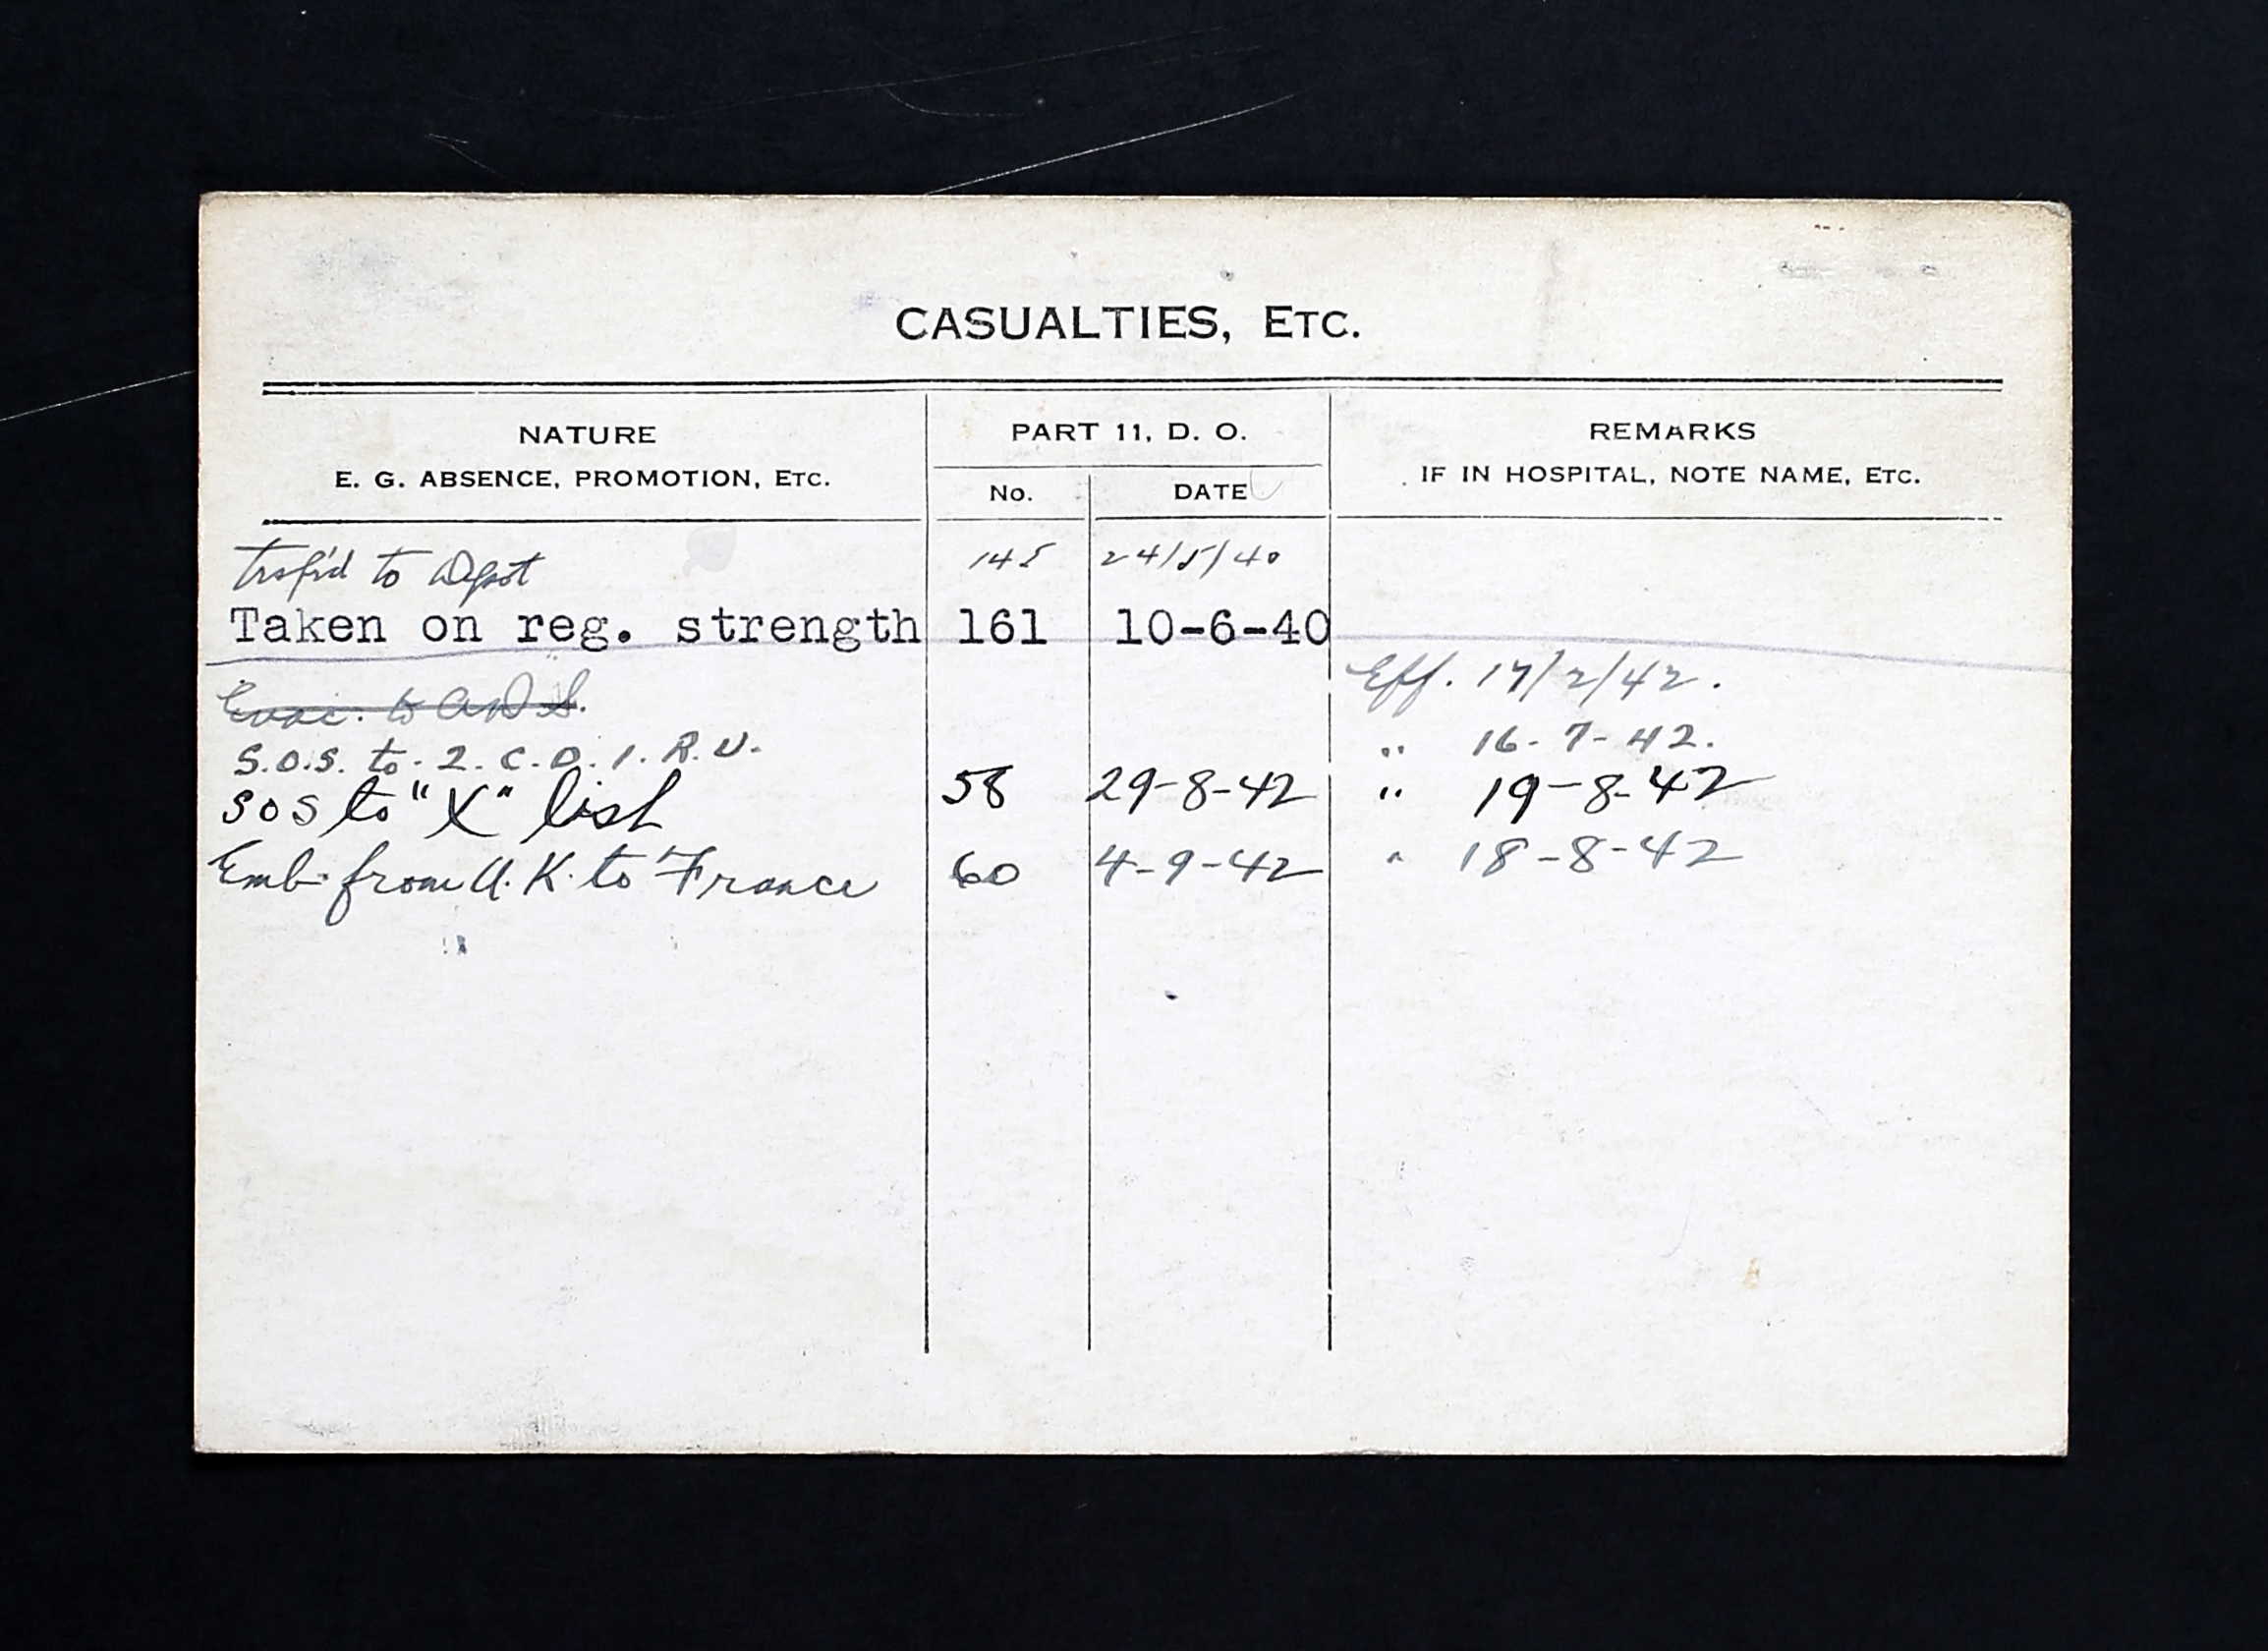 CASUALTIES, ETC.
NATURE PART 11, D. O. REMARKS
E. G. ABSENCE, PROMOTION, ETC. No. DATE IF IN HOSPITAL, NOTE NAME, ETC.
Trsf'd to Depot 145 24/5/40
Taken on reg. strength 161 10-6-40
Evac. to Eff. 17/2/42.
S.O.S. to. 2. C.D.I.R.U. " 16-7-42.
SOS to "X" list 58 29-8-42 " 19-8-42
Emb. from U.K. to France 60 4-9-42 " 18-8-42